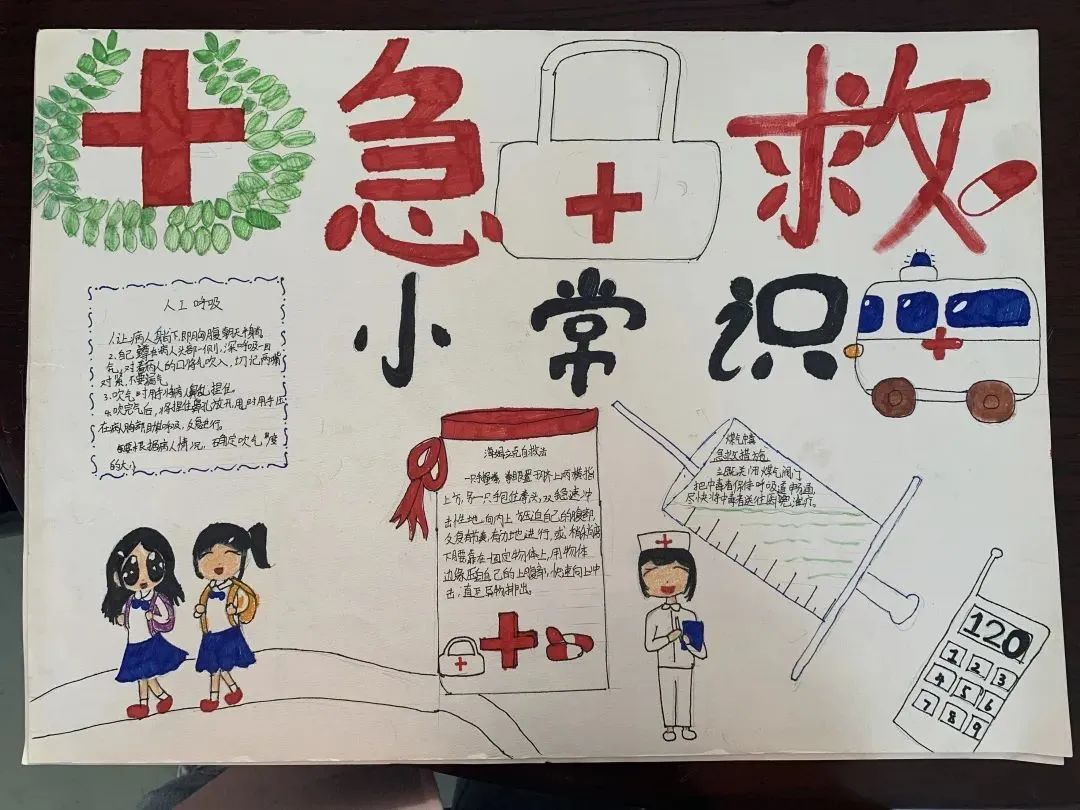 急救
小常识
人工呼吸
1.让病人躺下,即胸腹朝天平躺
2.自己蹲在病人头部一侧,深呼吸一口
气,对着病人的口将气吹入,切记两嘴
对紧,不要漏气
3.吹气时用手将病人鼻孔捏住
4.吹完气后,将捏住鼻孔放开,用手压
在病胸部助呼吸,反复进行。
根据病人情况,确定吹气
的大小
海姆立克自救法
一只手握拳,拳眼置于脐上两横指
上方,另一只手包住拳头,双手急速冲
击性地,向内上方压迫自己的腹部,
反复有节奏,有力地进行,或稍稍弯
下腰靠在一固定物体上,用物体
边缘压迫自己的上腹部,快速向上冲
击,直至异物排出。
煤气中毒
急救措施
立既关闭煤气阀门
把中毒者保持呼吸道畅通,
尽快将中毒者送往医院治疗。
120
1 2 3
4 5 6
7 8 9